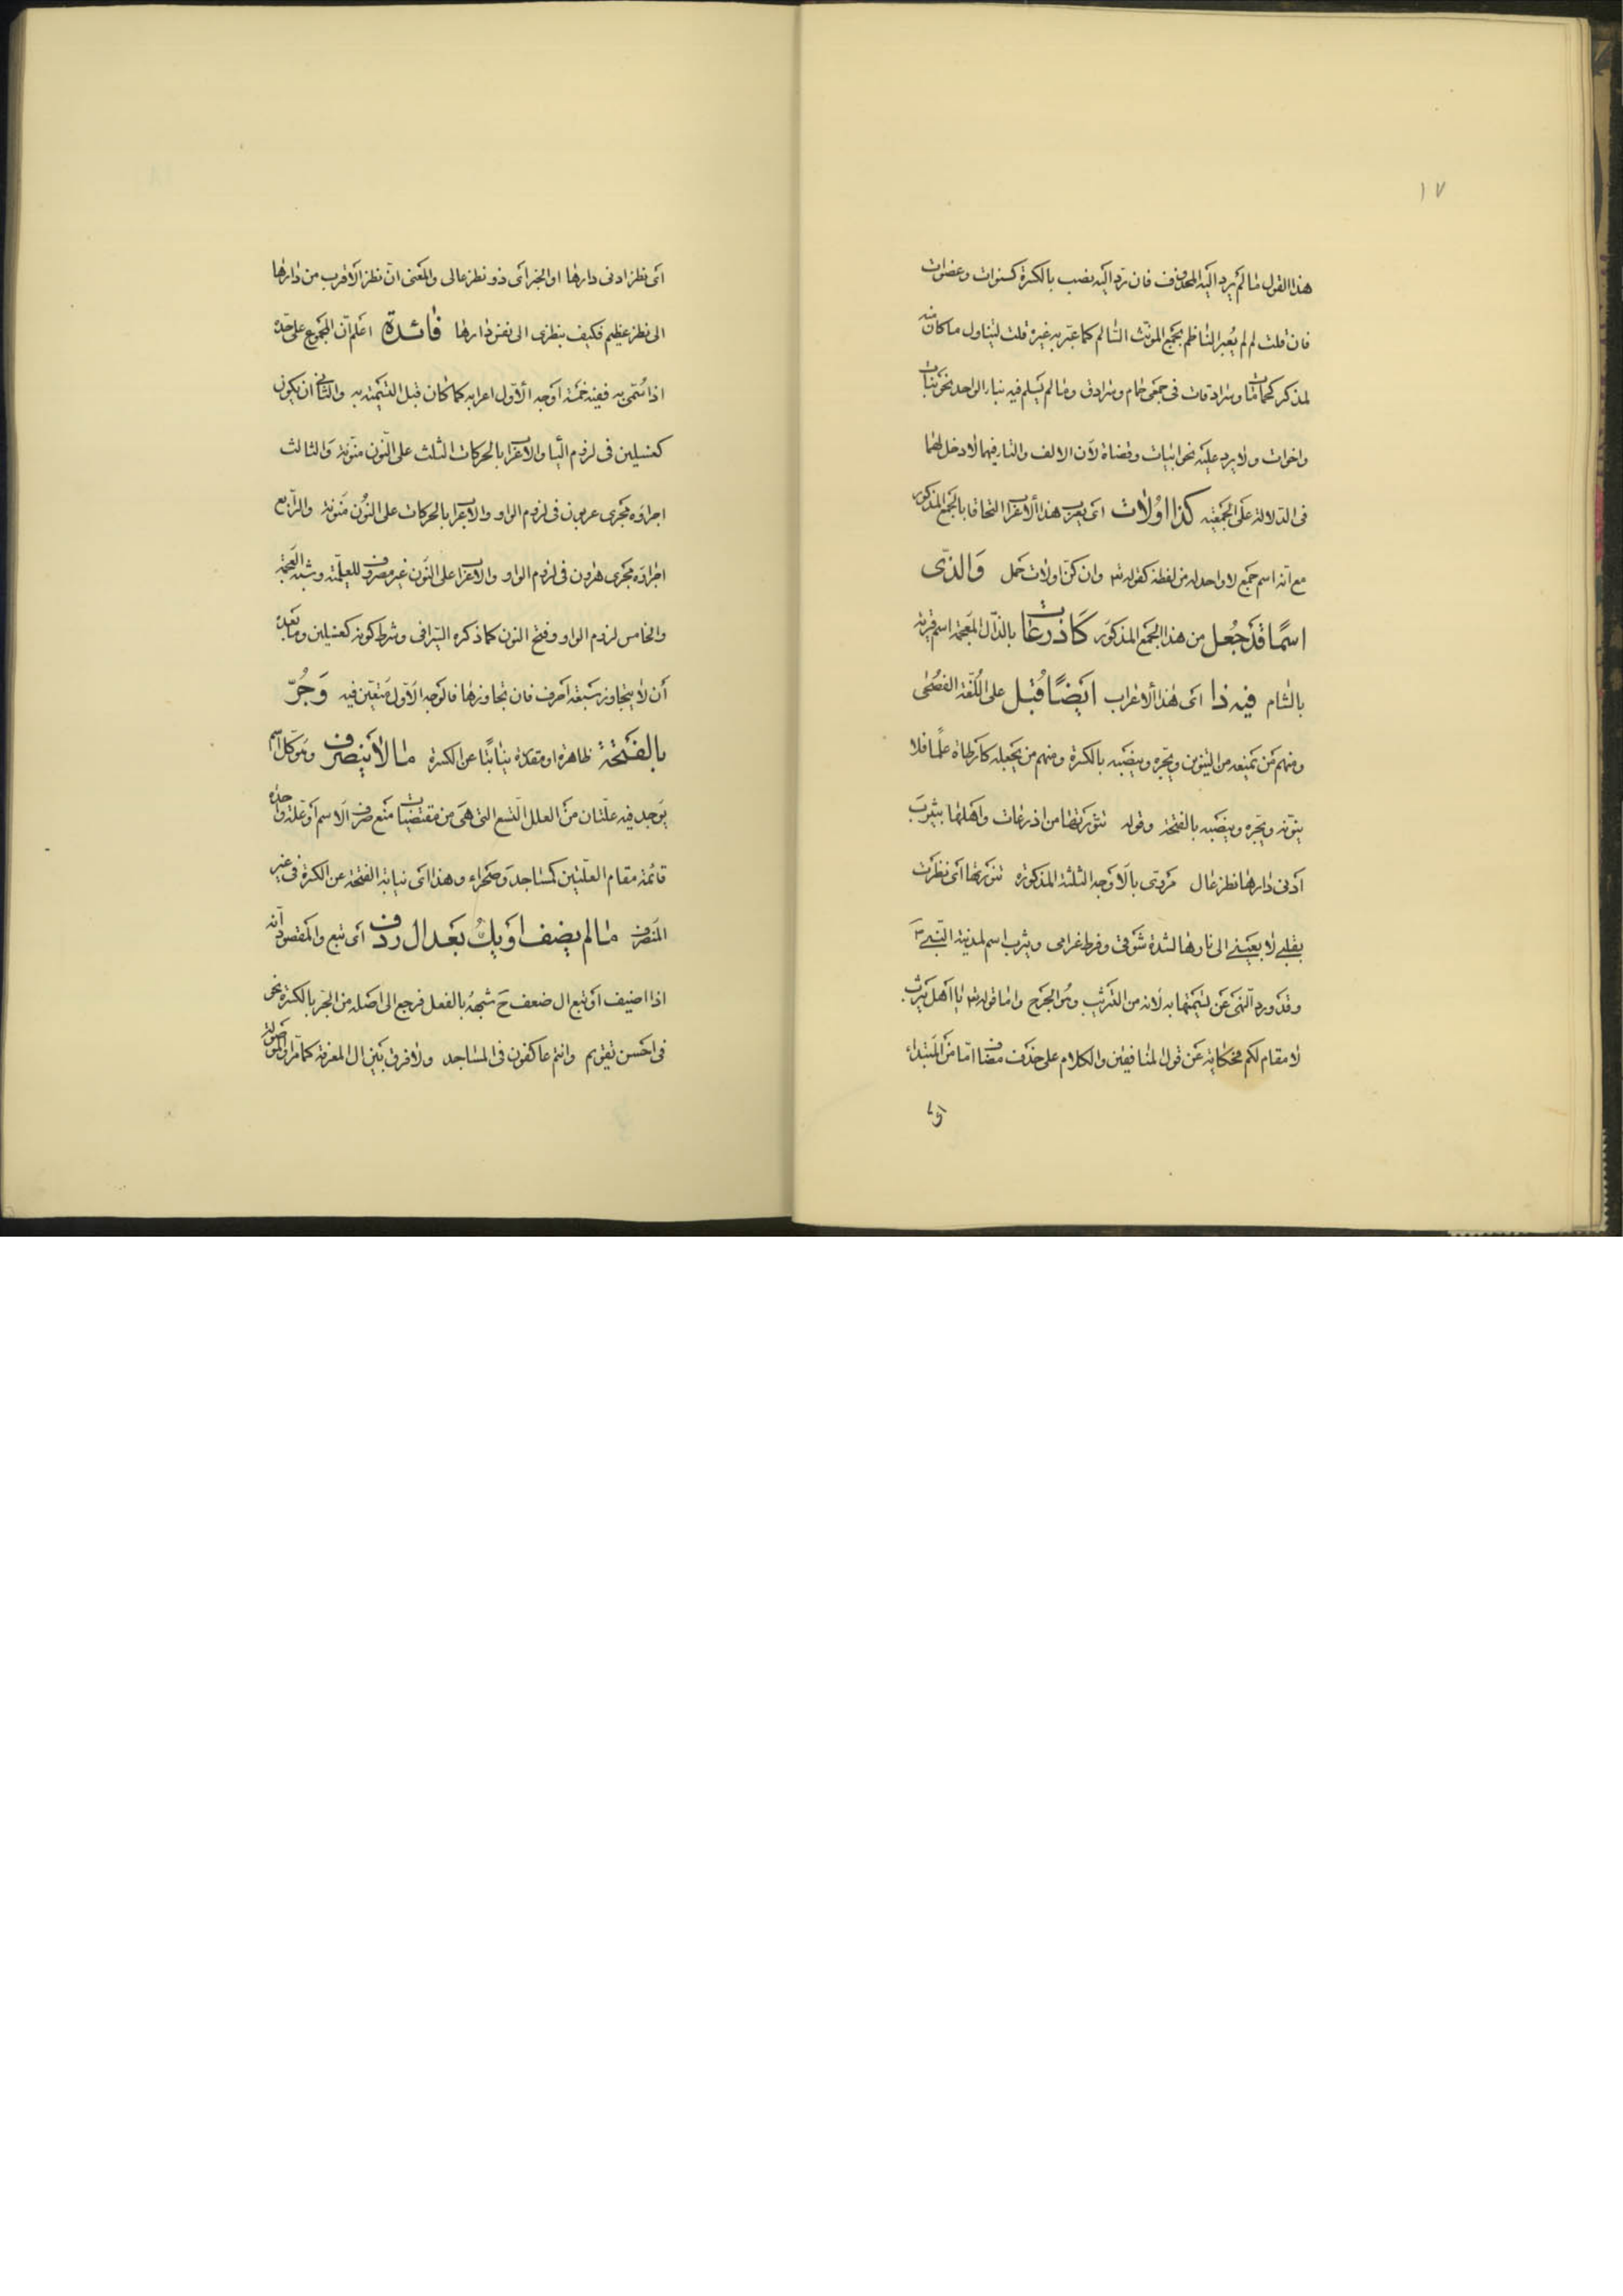 ١٧
هذا القول ما لم يرد اليه المحذوف فان رد اليه نصب بالكسرة كسنوات وعضوات
فان قلت لم لم يعبر الناظم بجمع المؤنث السالم كما عبر به غيره قلت ليتناول ما كان منه
لمذكر كحمامات وسرادقات فى جمعى حمام وسرادق وما لم يسلم فيه بناء الواحد نحو بنات
واخوات ولا يرد عليه نحو ابيات وقضاة لان الالف والتاء فيهما لا دخل لهما
فى الدلالة على الجمعية كذا اولات اى يعرب هذا الاعراب الحاقا بالجمع المذكور
مع انه اسم جمع لا واحد له من لفظه كقوله تعـ وان كن اولات حمل وَالذّى
اسمًا قَدْ جُعل من هذا الجمع المذكور كَاَذرعات بالذال المعجمة اسم قرية
بالشام فيه ذا اى هذا الاعراب ايضًا قُبل على اللغة الفصحى
ومنهم من يمنعه من التنوين ويجره وينصبه بالكسرة ومنهم من يجعله كارطاة علمًا فلا
ينونه ويجره وينصبه بالفتحة وقوله تنورتها من اذرعات واهلها بيثرب
ادنى دارها نظر عال مروىّ بالاوجه الثلثة المذكورة تنورتها اى نظرت
بقلبى لا بعينى الى نارها لشدة شوقى وفرط غرامى ويثرب اسم لمدينة النبى ص
وقد ورد النهى عن تسميتها به لانه من التثريب وهو الجرح واما قوله تعـ يا اهل يثرب
لا مقام لكم فحكاية عن قول المنافقين والكلام على حذف مضاف اما من المبتداء
اى
اى نظر ادنى دارها او الخبر اى ذو نظر عالى والمعنى ان نظر الاقرب من دارها
الى نظر عظيم فكيف بنظرى الى نفس دارها فائدة اعلم ان المجموع على حده
اذا سُمى به ففيه خمسة اوجه الاول اعرابه كما كان قبل التسمية به والثانى ان يكون
كغسلين فى لزوم اليا والاعراب بالحركات الثلث على النون منونة والثالث
اجراؤه مجرى عربون فى لزوم الواو والاعراب بالحركات على النون منونة والرابع
اجراؤه مجرى هرون فى لزوم الواو والاعراب على النون غير مصروف للعلمية وشبه العجمة
والخامس لزوم الواو وفتح النون كما ذكره السيرافى وشرط كونه كغسلين وما بعده
أن لا يتجاوز سبعة احرف فان تجاوزها فالوجه الاول متعين فيه وَجُرّ
بالفَتحة ظاهرة او مقدرة نيابًا عن الكسرة مالا ينصرف وهو كل اسم
يوجد فيه علتان من العلل التسع التى هى من مقتضيات منع صرف الاسم او علة واحدة
قائمة مقام العلتين كمساجد وصحراء وهذا اى نيابة الفتحة عن الكسرة فى غير
المنصرف مالم يضف اَو يكُ بَعد ال ردف اى تبع والمقصود انه
اذا اضيف او تبع ال ضعف ح شبهه بالفعل فرجع الى اصله من الجر بالكسرة نحو
فى احسن تقويم وانتم عاكفون فى المساجد ولا فرق بين ال المعرفة كما مر والموصولة